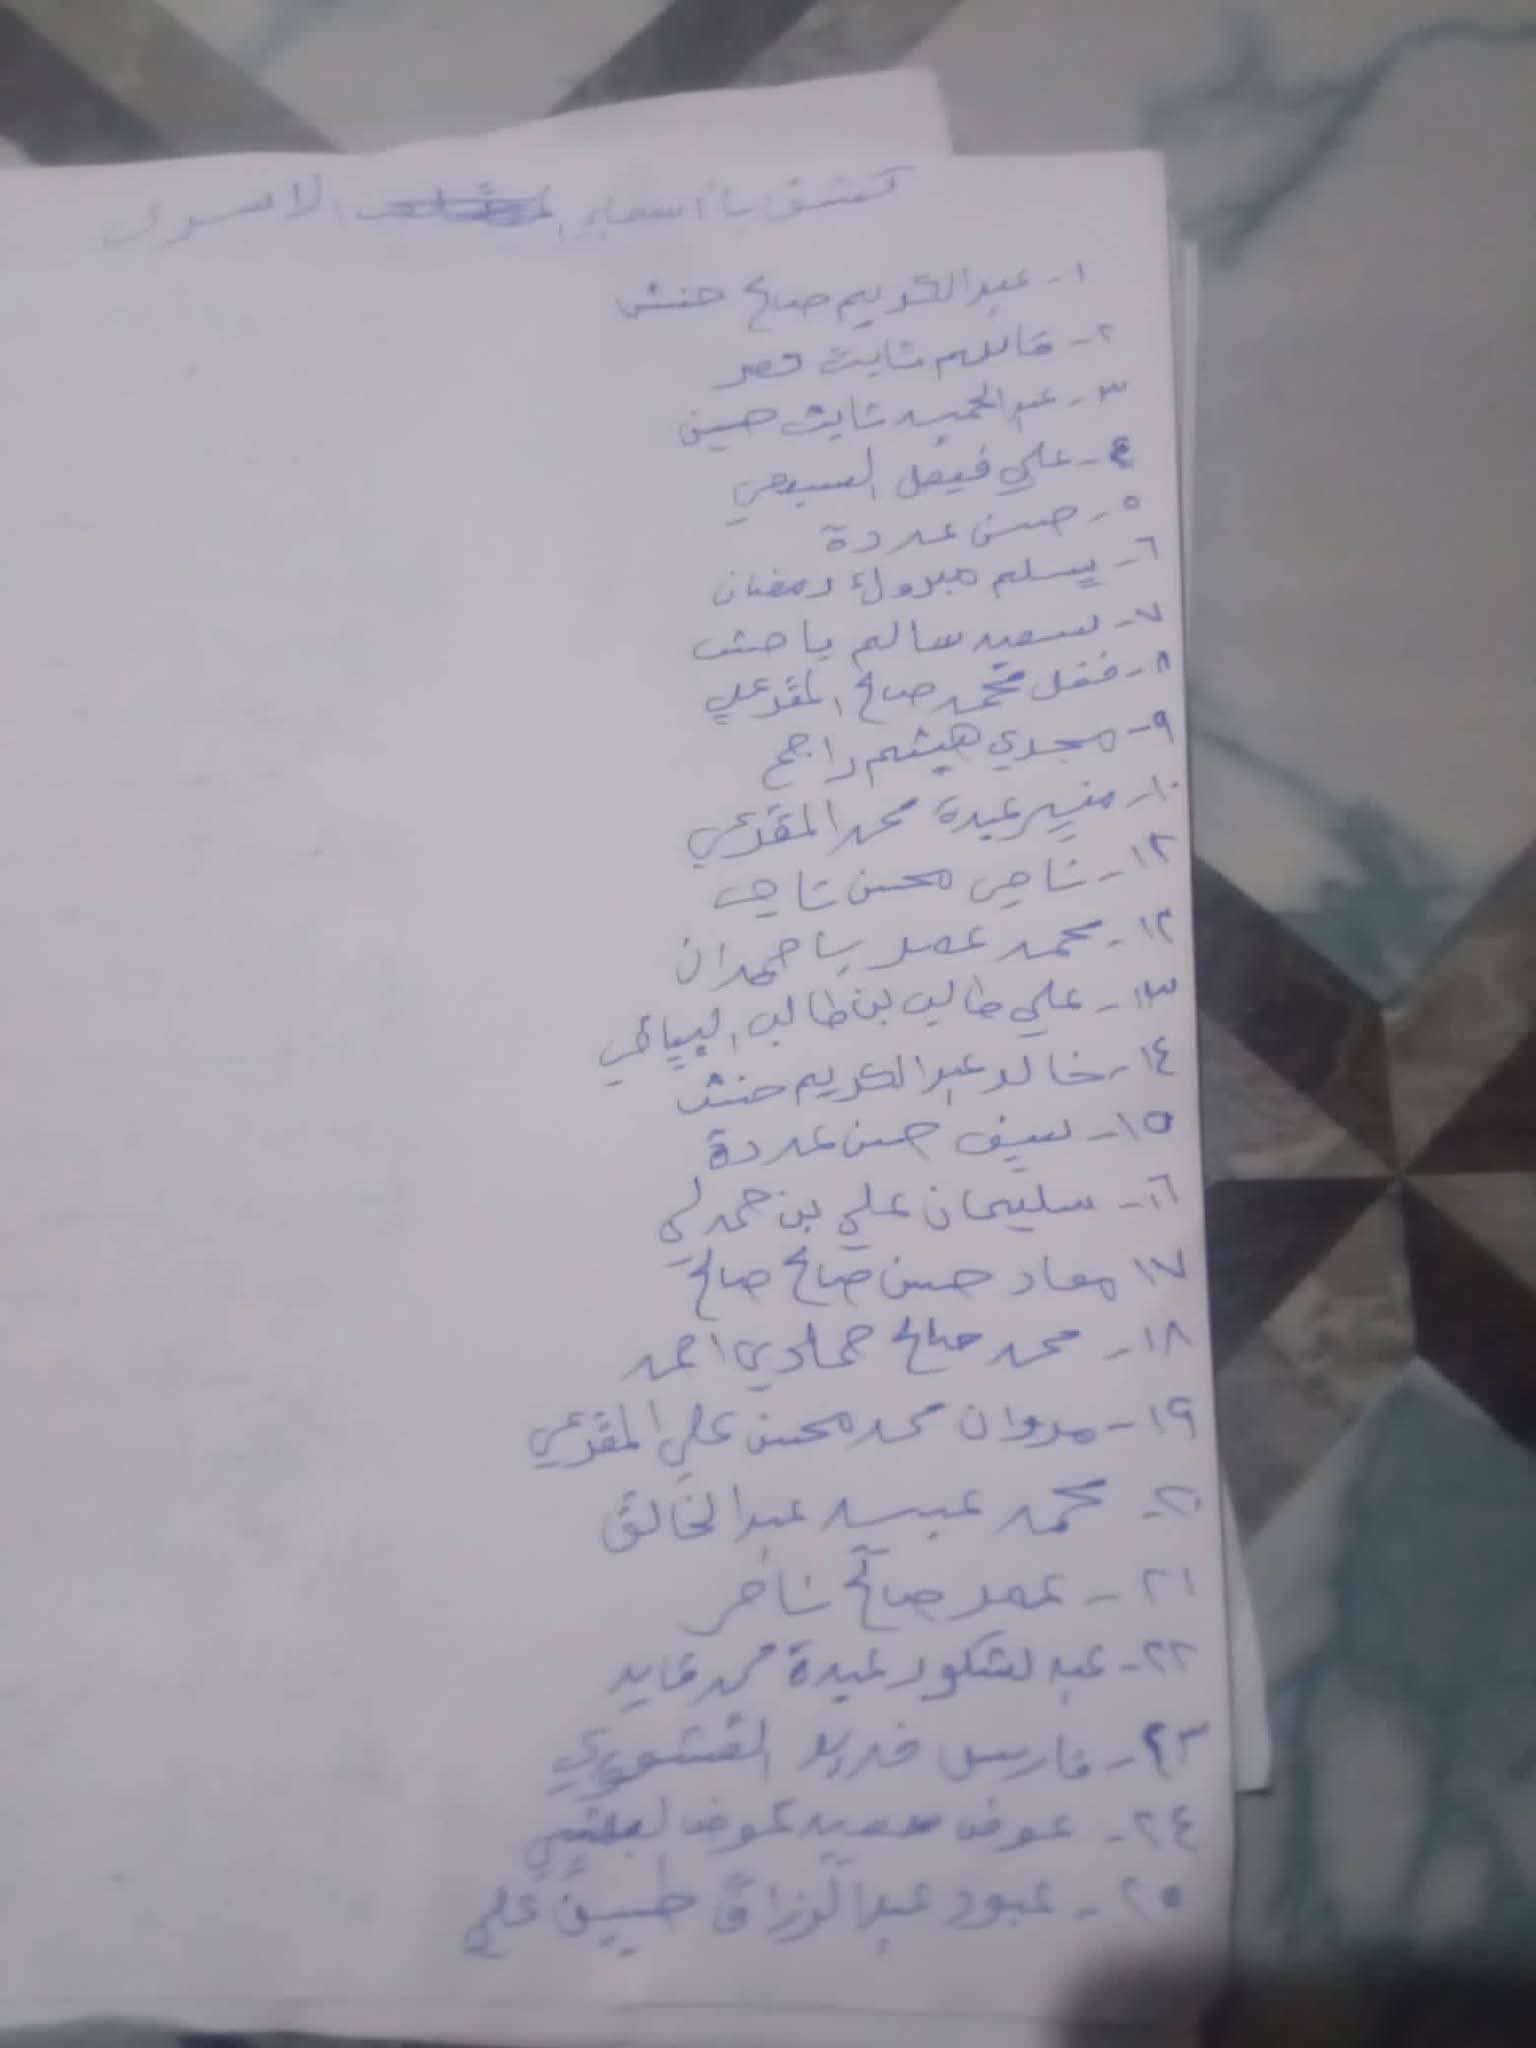 كشف بأسماء الاسرى
١- عبدالكريم صالح حنش
٢- قاسم ثابت
٣- عبدالحميد ثابت حسين
٤- علي فيصل السبعي
٥- حسن عردة
٦- يسلم مبروك رمضان
٧- سعيد سالم باحنش
٨- فضل محمد صالح المقدعي
٩- مجدي هيثم راجح
١٠- منير عبدة محمد المقدعي
١٢- ناجي محسن ناجي
١٢- محمد عمر باحمدان
١٣- علي طالب بن طالب اليافي
١٤- خالد عبدالكريم حنش
١٥- سيف حسن عردة
١٦- سليمان علي بن حمد
١٧ معاد حسن صالح صالح
١٨- محمد صالح حمادي احمد
١٩- مروان محمد محسن علي المقدعي
٢٠- محمد عبدالخالق
٢١- عمر صالح
٢٢- عبدلشكور عبدة محمد قايد
٢٣- فارس فريد
٢٤- عوض سعيد عوض
٢٥- عبود عبدالرزاق حسين علي